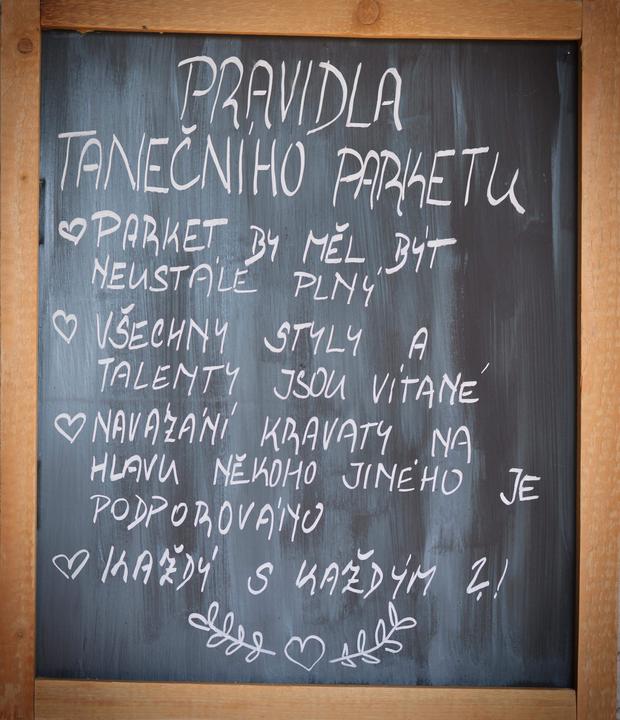 PRAVIDLA
TANEČNÍHO PARKETU
PARKET BY MĚL BÝT
NEUSTÁLE PLNÝ
VŠECHNY STYLY A
TALENTY JSOU VÍTANÉ
NAVÁZÁNÍ KRAVATY NA
HLAVU NĚKOHO JINÉHO JE
PODPOROVÁNO
KAŽDÝ S KAŽDÝM ?!